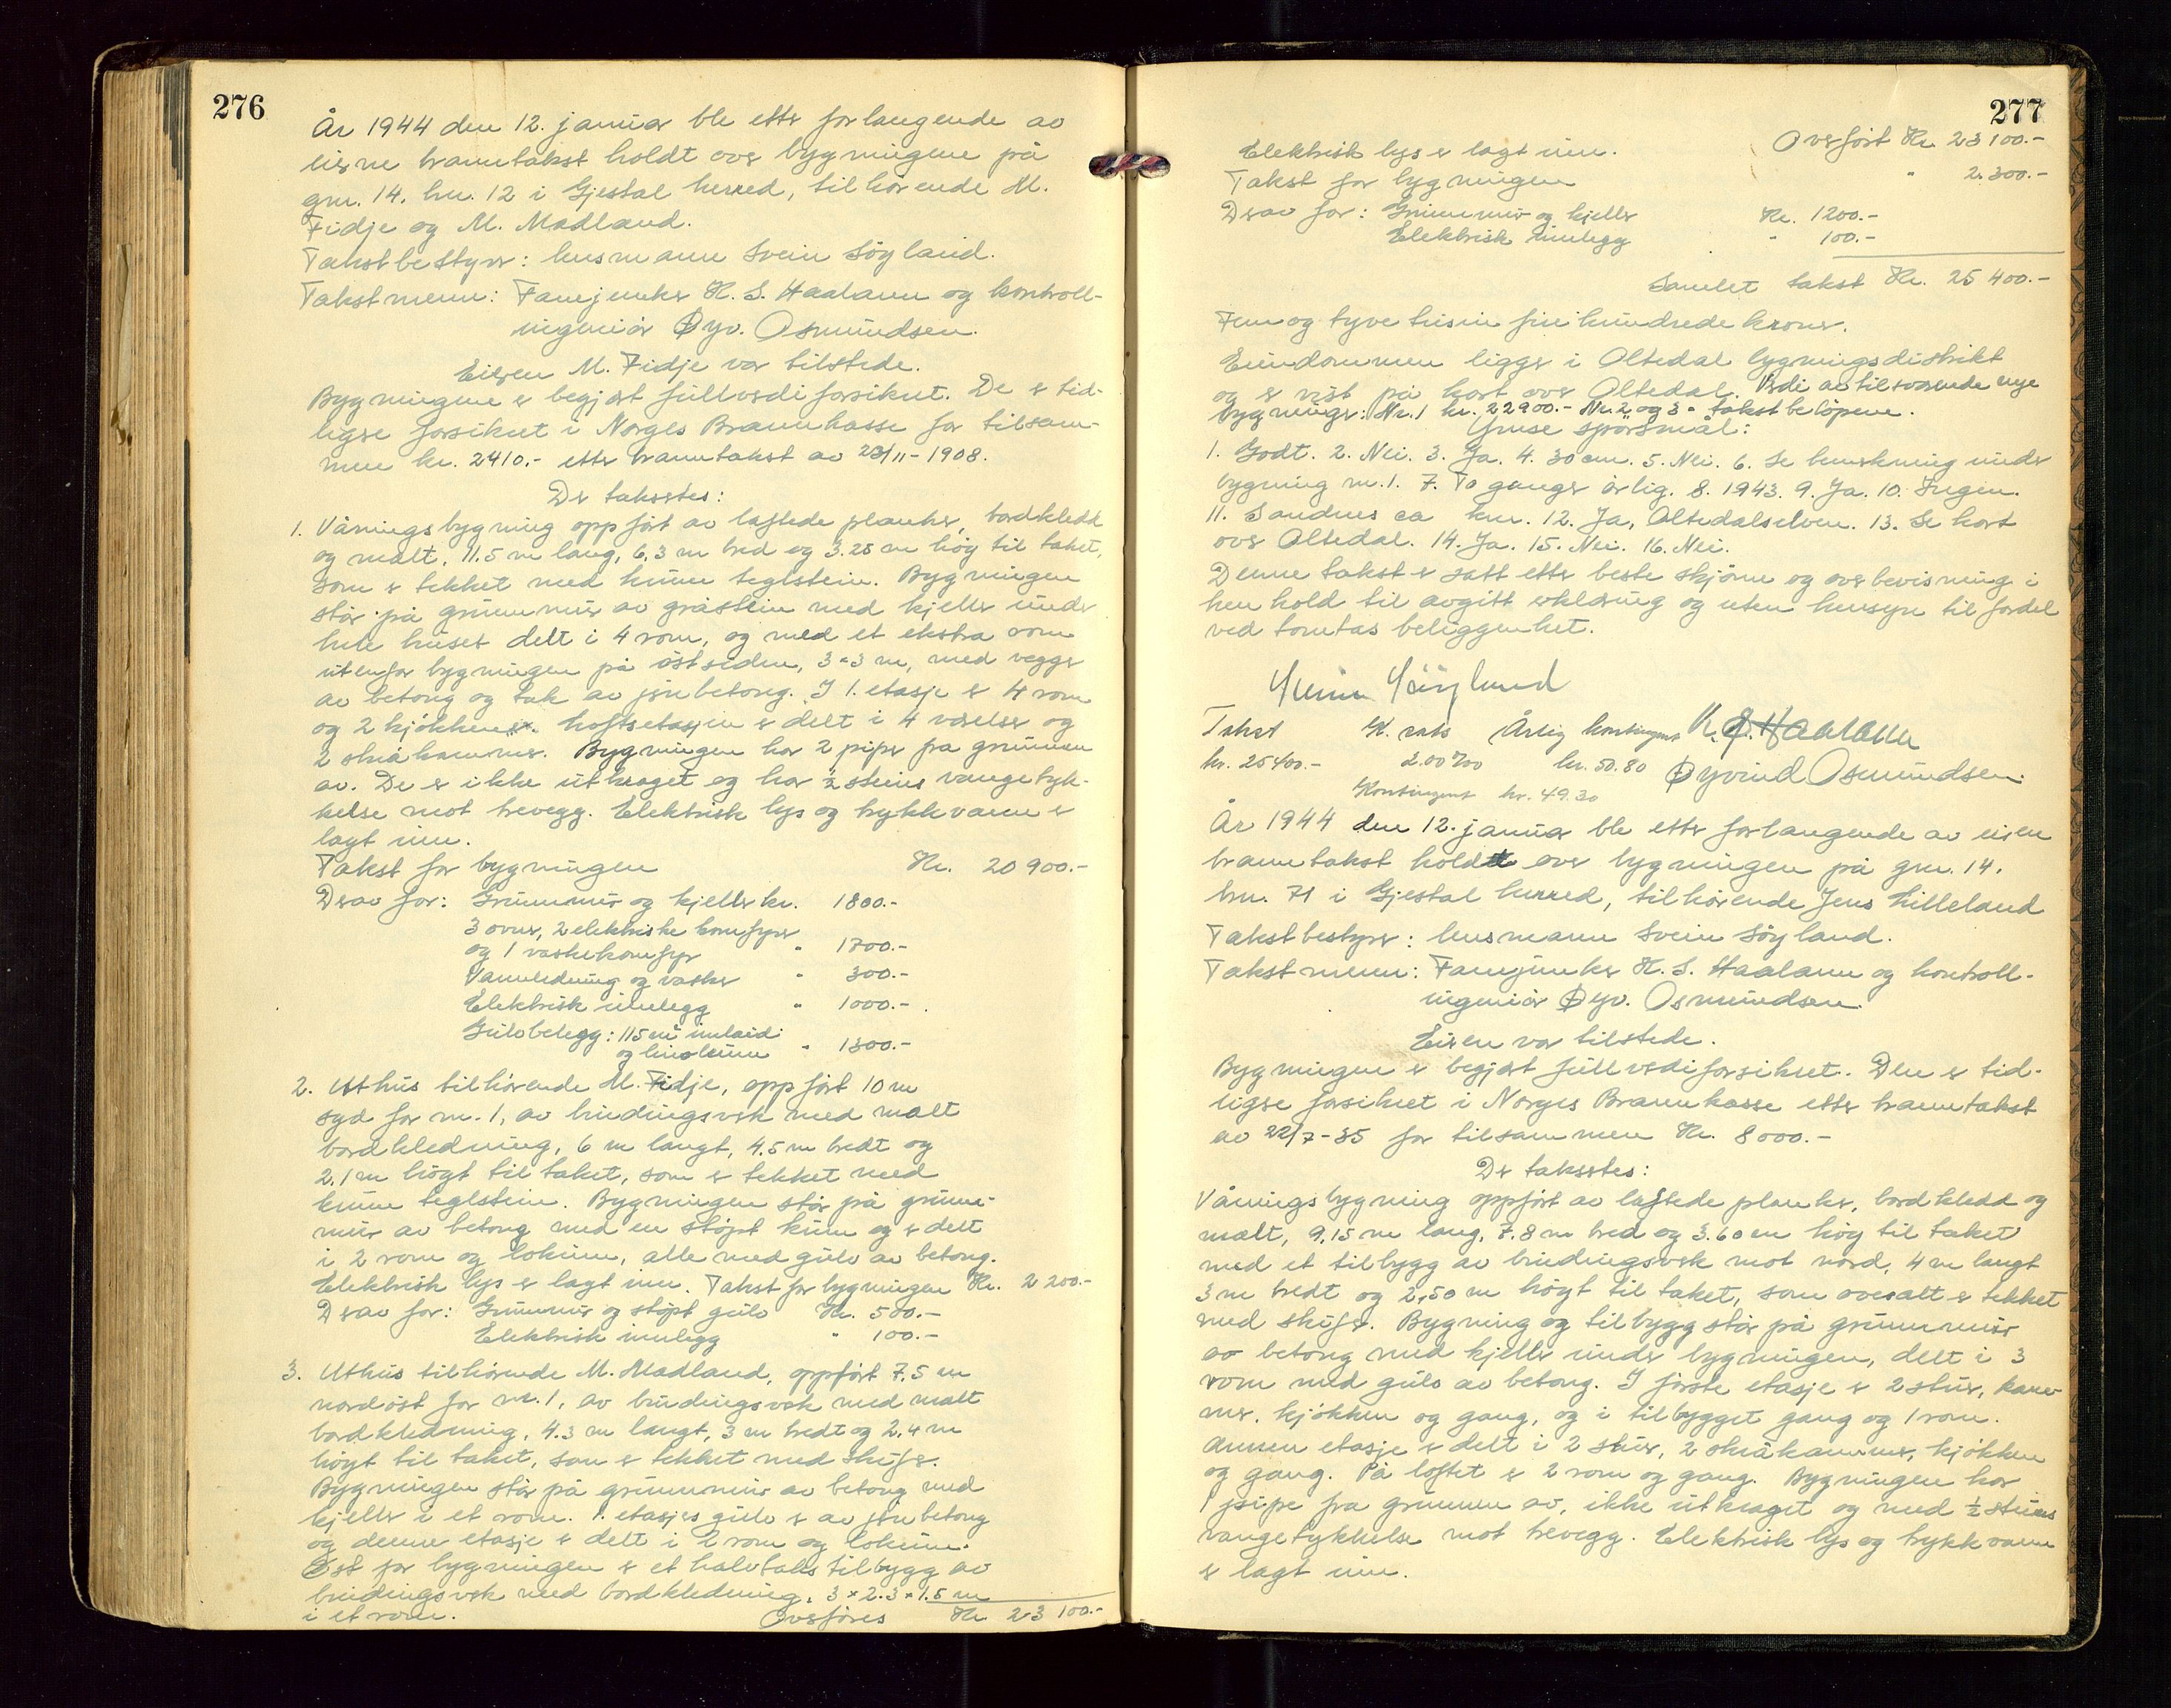 276
År 1944 den 12. januar ble etter forlangende av
eierne branntakst holdt over bygningene på
gnr. 14. bnr. 12 i Gjestal herred, tilhörende M.
Fidje og M. Madland.
Takstbestyrer: lensmann Svein Söyland.
Takstmenn: Fanejunker K. S. Haaland og kontroll-
ingeniör Øyv. Osmundsen.
Eieren M. Fidje var tilstede.
Bygningene er begjært fullverdiforsikret. De er tid-
ligere forsikret i Norges Brannkasse for tilsam-
men kr. 2410.- etter branntakst av 23/11-1908.
Der takseres:
1. Våningsbygning oppfört av laftede planker, bordkledd
og malt, 11.5 m lang, 6,3 m bred og 3.25 m höy til taket,
som er tekket med krum teglstein. Bygningen
står på grunnmur av gråstein med kjeller under
hele huset delt i 4 rom, og med et ekstra rom
utenfor bygningen på östsiden, 3×3 m, med vegger
av betong og tak av jernbetong. I 1. etasje er 4 rom
og 2 kjökken. Loftsetasjen er delt i 4 værelser og
2 skråkammer. Bygningen har 2 piper fra grunnen
av. De er ikke utkraget og har ½ steins vangetyk-
kelse mot trevegg. Elektrisk lys og trykkvann er
lagt inn.
Takst for bygningen Kr. 20 900.-
Derav for: Grunnmur og kjeller kr. 1800.-
3 ovner, 2 elektriske komfyrer
og 1 vaskekomfyr " 1700.-
Vannledning og vasker " 300.-
Elektrisk innlegg " 1000.-
Gulvbelegg: 115 m² inlaid
og linoleum " 1300.-
2. Uthus tilhörende M. Fidje, oppfört 10 m
syd for nr. 1, av bindingsverk med malt
bordkledning, 6 m langt, 4.5 m bredt og
2.1 m höyt til taket, som er tekket med
krum teglstein. Bygningen står på grunn-
mur av betong med en stöpt kum og er delt
i 2 rom og lokum, alle med gulv av betong.
Elektrisk lys er lagt inn. Takst for bygningen Kr. 2 200.-
Derav for: Grunnmur og stöpt gulv Kr. 500.-
Elektrisk innlegg " 100.-
3. Uthus tilhörende M. Madland, oppfört 7.5 m
nordöst for nr. 1, av bindingsverk med malt
bordkledning, 4.3 m langt, 3 m bredt og 2.4 m
höyt til taket, som er tekket med skifer.
Bygningen står på grunnmur av betong med
kjeller i et rom. 1. etasjes gulv er av jernbetong
og denne etasje er delt i 2 rom og lokum.
Öst for bygningen er et halvtaks tilbygg av
bindingsverk med bordkledning, 3×2.3×1.5 m
i et rom. Overföres Kr. 23 100.-
277
Overfört Kr. 23 100.-
Elektrisk lys er lagt inn.
Takst for bygningen " 2.300.-
Derav for: Grunnmur og kjeller Kr. 1200.-
Elektrisk innlegg " 100.-
Samlet takst Kr. 25 400.-
Fem og tyve tusen fire hundrede kroner.
Eiendommen ligger i Oltedal bygningsdistrikt
og er vist på kart over Oltedal. Verdi av tilsvarende nye
bygninger: Nr. 1 kr. 22900.- Nr. 2 og 3 = takstbelöpene.
Ymse spörsmål:
1. Godt. 2. Nei. 3. Ja. 4. 30 cm. 5. Nei. 6. Se bemerkning under
bygning nr. 1. 7. To ganger årlig. 8. 1943. 9. Ja. 10. Ingen.
11. Sandnes ca km. 12. Ja, Oltedalselven. 13. Se kart
over Oltedal. 14. Ja. 15. Nei. 16. Nei.
Denne takst er satt etter beste skjönn og overbevisning i
henhold til avgitt erklæring og uten hensyn til fordel
ved tomtas beliggenhet.
Svein Söyland
Takst K. sats Årlig kontingent K. S. Haaland
kr. 25400.- 2.00 ‰ kr. 50.80 Øyvind Osmundsen.
Kontingent kr. 49.30
År 1944 den 12. januar ble etter forlangende av eieren
branntakst holdt over bygningen på gnr. 14.
bnr. 71 i Gjestal herred, tilhörende Jens Lilleland
Takstbestyrer: lensmann Svein Söyland.
Takstmenn: Fanejunker K. S. Haaland og kontroll-
ingeniör Øyv. Osmundsen.
Eieren var tilstede.
Bygningen er begjært fullverdiforsikret. Den er tid-
ligere forsikret i Norges Brannkasse etter branntakst
av 22/7-35 for tilsammen Kr. 8000.-
Der takseres:
Våningsbygning oppfört av laftede planker, bordkledd og
malt, 9,15 m lang, 7.8 m bred og 3.60 m höy til taket
med et tilbygg av bindingsverk mot nord, 4 m langt
3 m bredt og 2,50 m höyt til taket, som overalt er tekket
med skifer. Bygning og tilbygg står på grunnmur
av betong med kjeller under bygningen, delt i 3
rom med gulv av betong. I förste etasje er 2 stuer, kam-
mer, kjökken og gang, og i tilbygget gang og 1 rom.
Annen etasje er delt i 2 stuer, 2 skråkammer, kjökken
og gang. På loftet er 2 rom og gang. Bygningen har
1 pipe fra grunnen av, ikke utkraget og med ½ steins
vangetykkelse mot trevegg. Elektrisk lys og trykkvann
er lagt inn.